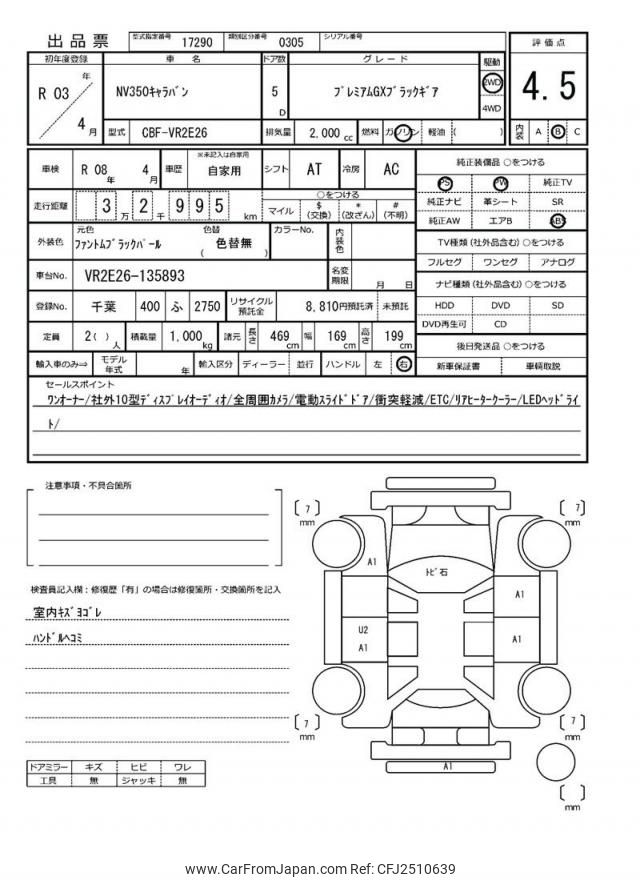 出品票
型式指定番号 17290 類別区分番号 0305 シリアル番号
初年度登録 車名 ドア数 グレード 駆動 評価点
R 03 年 4 月
NV350キャラバン 5 D プレミアムGXブラックギア 2WD 4WD
4.5
型式 CBF-VR2E26 排気量 2,000 cc 燃料 ガソリン 軽油 ( )
内装 A B C
車検 R 08 年 4 月 車歴 ※未記入は自家用 自家用 シフト AT 冷房 AC
走行距離 3 万 2 千 9 9 5 km
○をつける
マイル $ (交換) * (改ざん) # (不明)
外装色 元色 ファントムブラックパール 色替 ( 色替無 ) カラーNo. 内装色
車台No. VR2E26-135893 名変期限 月 日
登録No. 千葉 400 ふ 2750 リサイクル預託金 8,810円預託済 未預託
定員 2( ) 人 積載量 1,000 kg 諸元 長さ 469 cm 幅 169 cm 高さ 199 cm
輸入車のみ⇒ モデル年式 年 輸入区分 ディーラー 並行 ハンドル 左 右
純正装備品 ○をつける
PS PW 純正TV
純正ナビ 革シート SR
純正AW エアB ABS
TV種類 (社外品含む) ○をつける
フルセグ ワンセグ アナログ
ナビ種類 (社外品含む) ○をつける
HDD DVD SD
DVD再生可 CD
後日発送品 ○をつける
新車保証書 車輌取説
セールスポイント
ワンオーナー/社外10型ディスプレイオーディオ/全周囲カメラ/電動スライドドア/衝突軽減/ETC/リアヒータークーラー/LEDヘッドライ
ト/
注意事項・不具合箇所
検査員記入欄:修復歴「有」の場合は修復箇所・交換箇所を記入
室内キズヨゴレ
ハンドルヘコミ
ドアミラー キズ ヒビ ワレ
工具 無 ジャッキ 無
[ 7 ] mm
[ 7 ] mm
A1
トビ石
A1
U2
A1
A1
[ 7 ] mm
[ 7 ] mm
A1
[ ] mm
www.CarFromJapan.com Ref: CFJ2510639